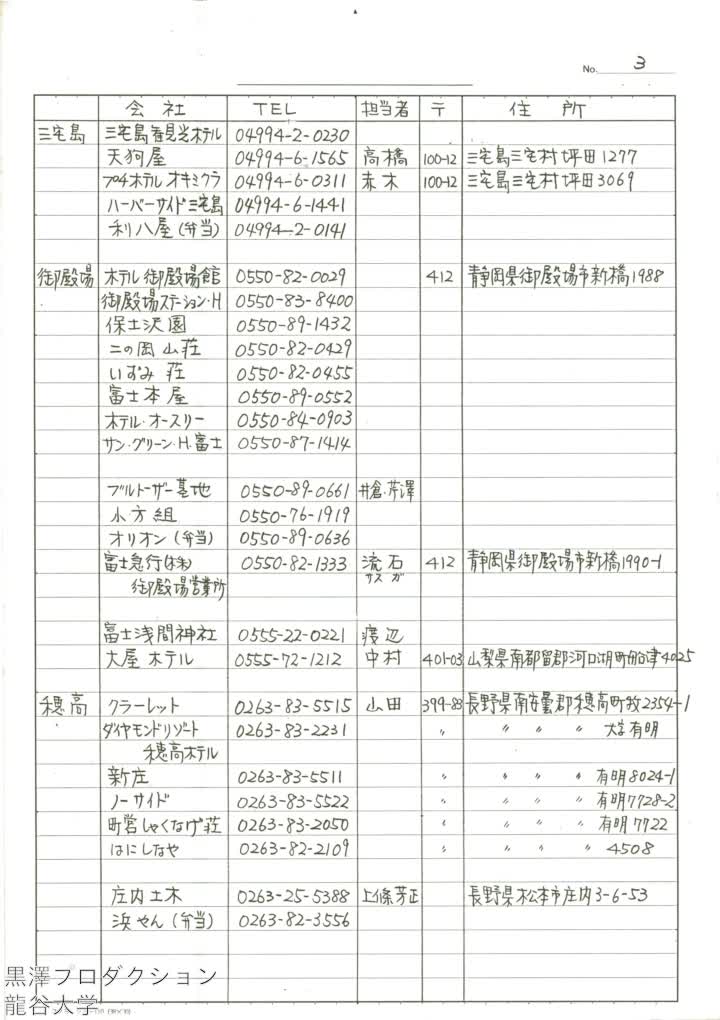 No. 3
会社 TEL 担当者 〒 住所
三宅島 三宅島観光ホテル 04994-2-0230
天狗屋 04994-6-1565 高橋 100-12 三宅島三宅村坪田1277
プチホテル オキミクラ 04994-6-0311 赤木 100-12 三宅島三宅村坪田3069
ハーバーサイド三宅島 04994-6-1441
利八屋(弁当) 04994-2-0141
御殿場 ホテル御殿場館 0550-82-0029 412 静岡県御殿場市新橋1988
御殿場ステーション・H 0550-83-8400
保土沢園 0550-89-1432
二の岡山荘 0550-82-0429
いずみ荘 0550-82-0455
富士本屋 0550-89-0552
ホテル・オースリー 0550-84-0903
サン・グリーン・H.富士 0550-87-1414
ブルトーザー基地 0550-89-0661 井倉・芹澤
小方組 0550-76-1919
オリオン(弁当) 0550-89-0636
富士急行(株) 0550-82-1333 流石 412 静岡県御殿場市新橋1990-1
御殿場営業所 サスガ
富士浅間神社 0555-22-0221 渡辺
大屋ホテル 0555-72-1212 中村 401-03 山梨県南都留郡河口湖町船津4025
穂高 クラーレット 0263-83-5515 山田 399-83 長野県南安曇郡穂高町牧2354-1
ダイヤモンドリゾート 0263-83-2231 〃 〃 〃 〃 大字有明
穂高ホテル
新庄 0263-83-5511 〃 〃 〃 〃 有明8024-1
ノーサイド 0263-83-5522 〃 〃 〃 〃 有明7728-2
町営しゃくなげ荘 0263-83-2050 〃 〃 〃 〃 有明7722
はにしなや 0263-82-2109 〃 〃 〃 〃 4508
庄内土木 0263-25-5388 上條芳正 長野県松本市庄内3-6-53
浜やん(弁当) 0263-82-3556
黒澤プロダクション
龍谷大学